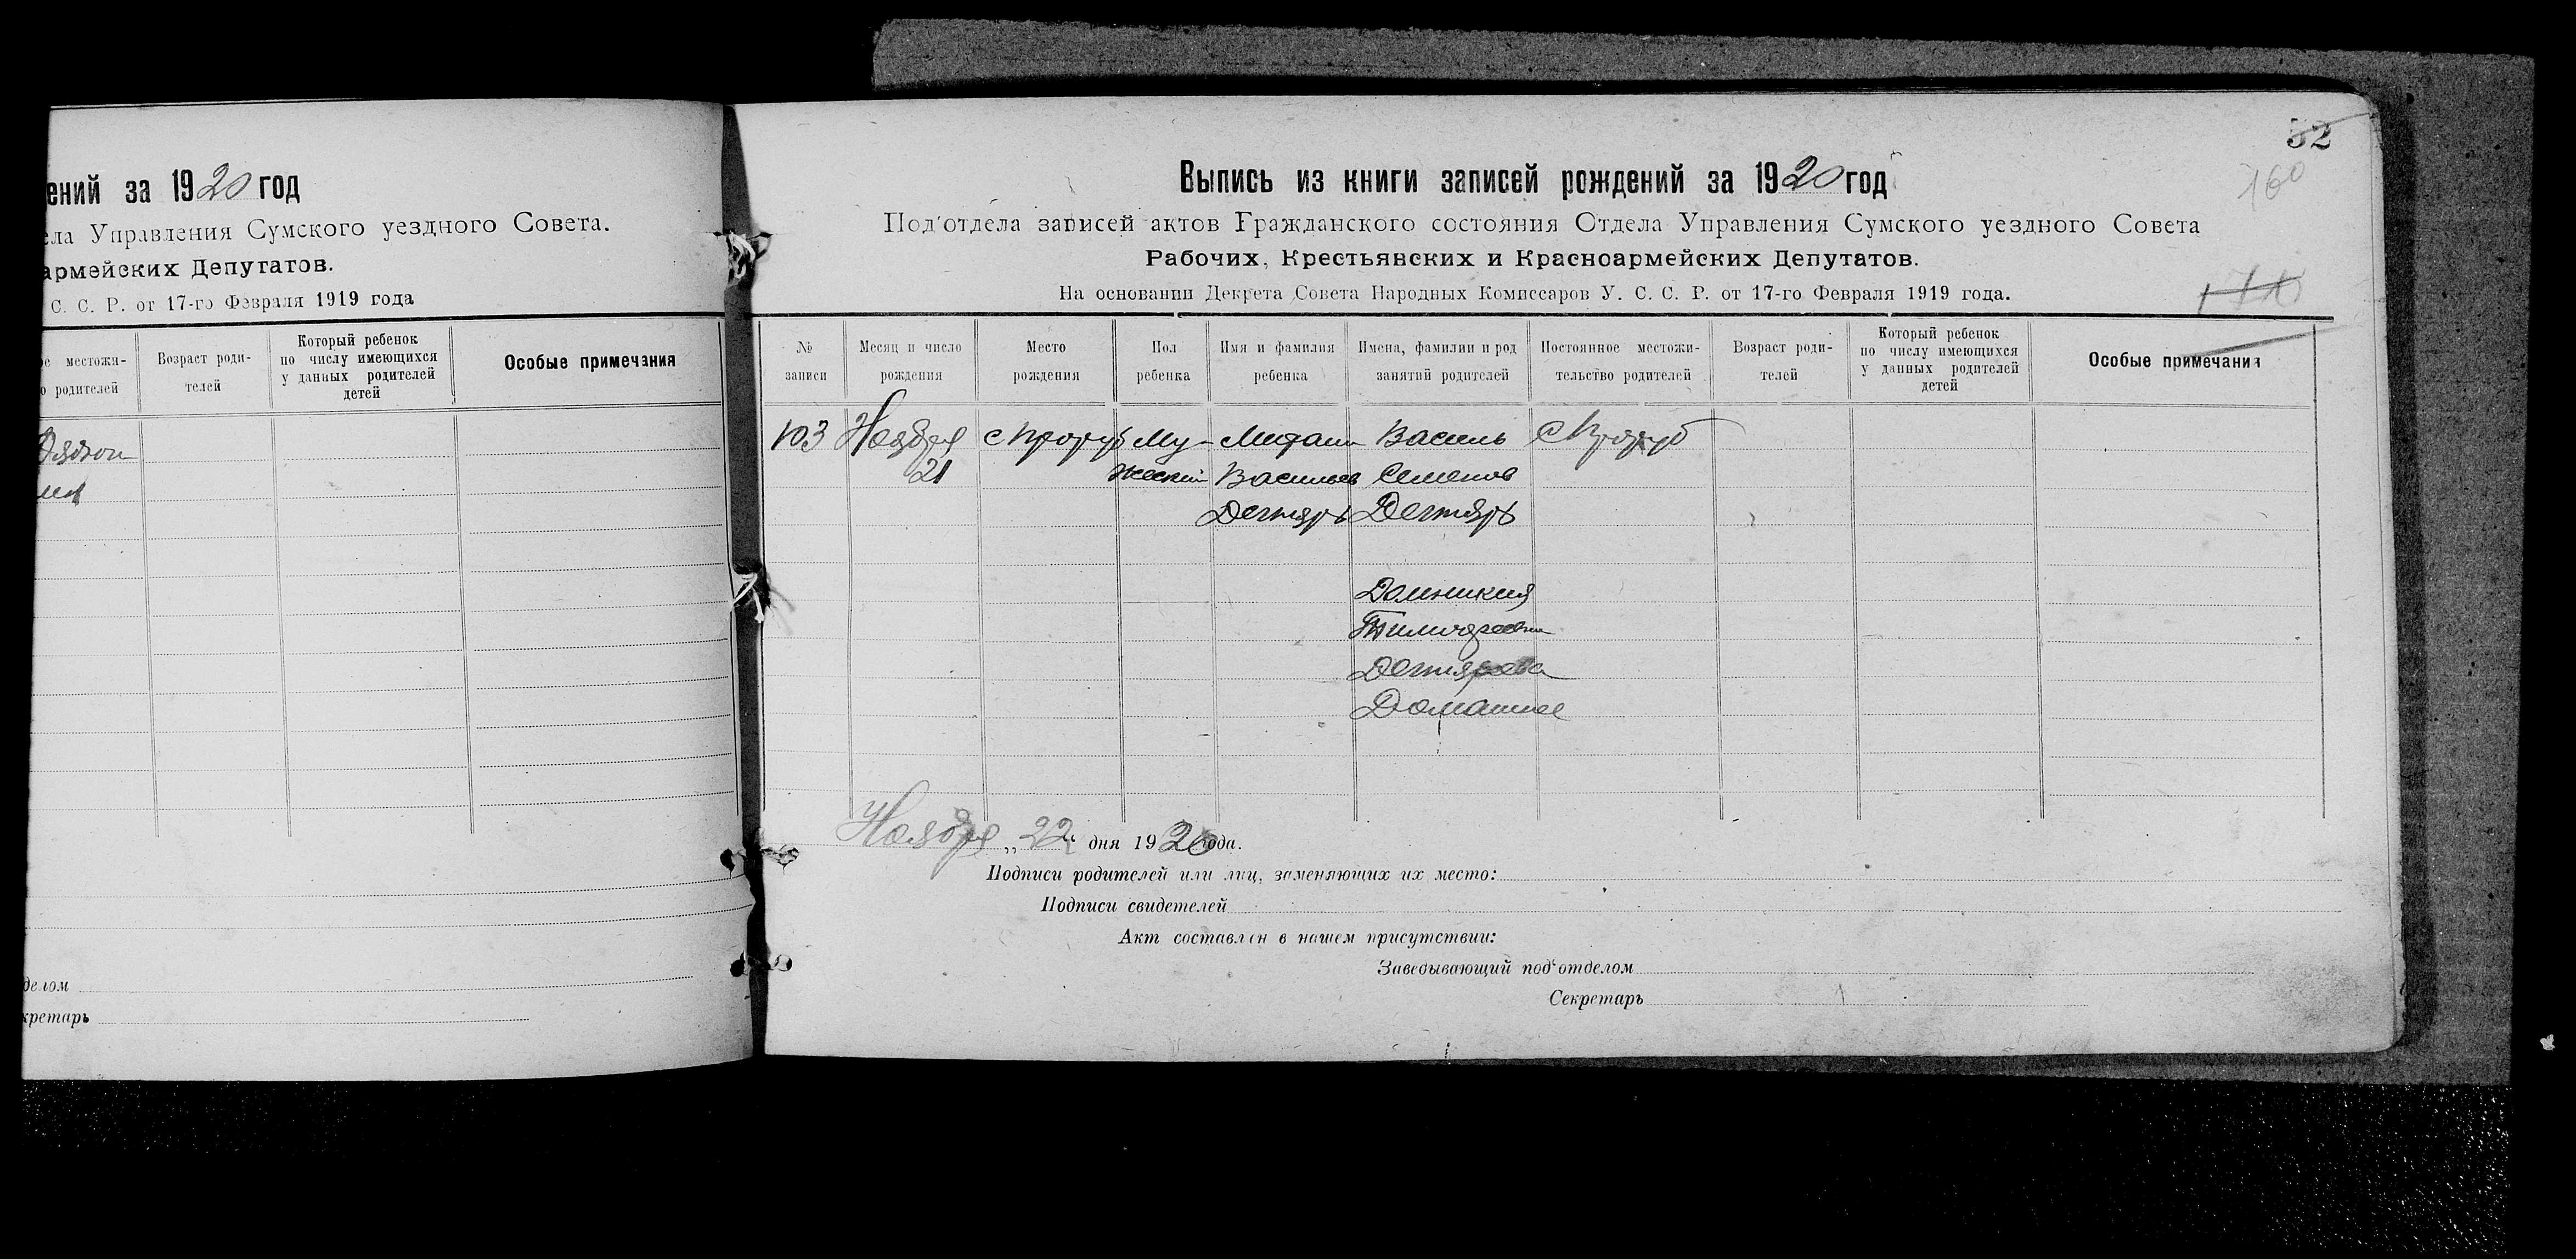 ений за 1920 год
ела Управления Сумского уездного Совета.
армейских Депутатов.
С. С. Р. от 17-го Февраля 1919 года
ое местожи-
о родителей
Возраст роди-
телей
Который ребенок
по числу имеющихся
у данных родителей
детей
Особые примечания
делом
кретарь
52
160
Выпись из книги записей рождений за 1920 год
Под'отдела записей актов Гражданского состояния Отдела Управления Сумского уездного Совета
Рабочих, Крестьянских и Красноармейских Депутатов.
На основании Декрета Совета Народных Комиссаров У. С. С. Р. от 17-го Февраля 1919 года.
№
записи
Месяц и число
рождения
Место
рождения
Пол
ребенка
Имя и фамилия
ребенка
Имена, фамилии и род
занятий родителей
Постоянное местожи-
тельство родителей
Возраст роди-
телей
Который ребенок
по числу имеющихся
у данных родителей
детей
Особые примечания
103
Ноября
21
с Проруб
Му-
жеский
Васильев
Дегтярь
Василь
Семенов
Дегтярь
Домникия
Тимофеевн
Дегтярева
Домашнее
с Проруб
Ноября „22“ дня 1920 года.
Подписи родителей или лиц, заменяющих их место:
Подписи свидетелей
Акт составлен в нашем присутствии:
Заведывающий под'отделом
Секретарь